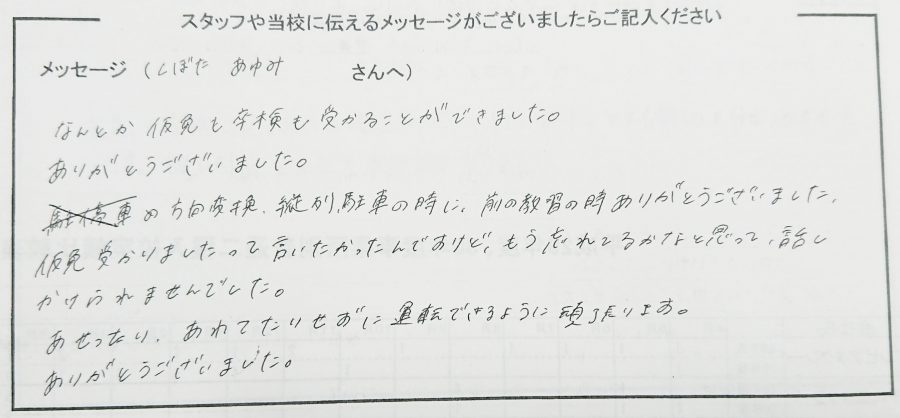 スタッフや当校に伝えるメッセージがございましたらご記入ください
メッセージ (しばた あゆみ さんへ)
なんとか仮免も卒検も受かることができました。
ありがとうございました。
の方向変換、縦列駐車の時に、前の教習の時ありがとうございました、
仮免受かりましたって言いたかったんですけど、もう忘れてるかなと思って、話し
かけられませんでした。
あせったり、あわてたりせずに運転できるように頑張ります。
ありがとうございました。